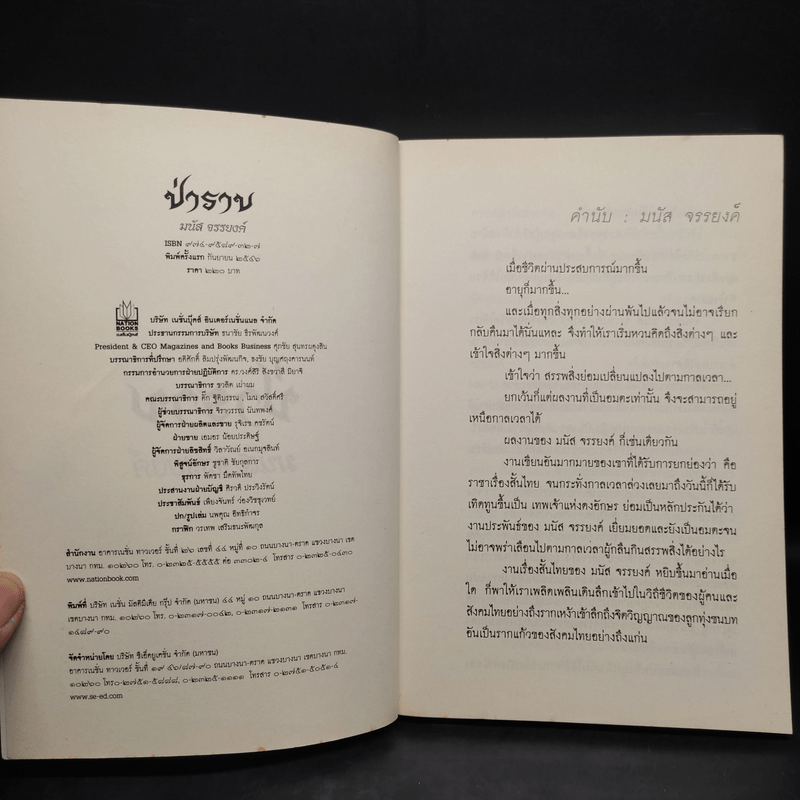 ป่าราบ
มนัส จรรยงค์
ISBN ๙๗๔-๙๕๘๙-๓๒-๗
พิมพ์ครั้งแรก กันยายน ๒๕๔๖
ราคา ๒๒๐ บาท
NATION
BOOKS
บริษัท เนชั่นบุ๊คส์ อินเตอร์เนชั่นแนล จำกัด
ประธานกรรมการบริษัท ธนาชัย ธีรพัฒนวงศ์
President & CEO Magazines and Books Business ศุภชัย สุนทรยศุงสิน
บรรณาธิการที่ปรึกษา อดิศักดิ์ ลิมปรุ่งพัฒนกิจ, ธงชัย
กรรมการอำนวยการฝ่ายปฏิบัติการ ดร.วงศ์สิริ
บรรณาธิการ ชวลิต
คณะบรรณาธิการ ดั๊ก ฐิติบรรณ, โมน สวัสดิ์ศรี
ผู้ช่วยบรรณาธิการ จิราวรรณ นันทพงศ์
ผู้จัดการฝ่ายผลิตและขาย รุจิเรข คชรัตน์
ฝ่ายขาย เอมอร น้อยประดิษฐ์
ผู้จัดการฝ่ายลิขสิทธิ์ วิลาวัณย์ อเนกมุขสินท์
พิสูจน์อักษร ชูชาติ ชัยกุลการ
ธุรการ พัดชา มีดทัพไทย
ประสานงานฝ่ายบัญชี ศิรวดี ประวิงรัตน์
ประชาสัมพันธ์ เพียงจันทร์ ว่องวิชชุเวทย์
ปก/รูปเล่ม นพคุณ อิทธิกำจร
กราฟิก วรเทพ เสริมชนะพัฒกุล
สำนักงาน อาคารเนชั่น ทาวเวอร์ ชั้นที่ ๒๖ เลขที่ ๔๔ หมู่ที่ ๑๐ ถนนบางนา-ตราด แขวงบางนา เขต
บางนา กทม. ๑๐๒๖๐ โทร. ๐-๒๓๒๕-๕๕๕๕ ต่อ ๒๓๒๒-๔ โทรสาร ๐-๒๓๒๕-๐๔๓๐
www.nationbook.com
พิมพ์ที่ บริษัท เนชั่น มัลติมีเดีย กรุ๊ป จำกัด (มหาชน) ๔๔ หมู่ ๑๐ ถนนบางนา-ตราด แขวงบางนา
เขตบางนา กทม. ๑๐๒๖๐ โทร. ๐-๒๓๑๗-๐๐๔๒, ๐-๒๓๑๗-๒๑๓๑ โทรสาร ๐-๒๓๑๗-
๑๔๘๙-๙๐
จัดจำหน่ายโดย บริษัท ซีเอ็ดยูเคชั่น จำกัด (มหาชน)
อาคารเนชั่น ทาวเวอร์ ชั้นที่ ๑๙ ๔๖/๘๗-๙๐ ถนนบางนา-ตราด แขวงบางนา เขตบางนา กทม.
๑๐๒๖๐ โทร.๐-๒๗๕๑-๕๘๘๘, ๐-๒๓๒๕-๑๑๑๑ โทรสาร ๐-๒๗๕๑-๕๐๕๑-๔
www.se-ed.com
คำนับ : มนัส จรรยงค์
เมื่อชีวิตผ่านประสบการณ์มากขึ้น
อายุก็มากขึ้น...
และเมื่อทุกสิ่งทุกอย่างผ่านพ้นไปแล้วจนไม่อาจเรียก
กลับคืนมาได้นั่นแหละ จึงทำให้เราเริ่มหวนคิดถึงสิ่งต่างๆ และ
เข้าใจสิ่งต่างๆ มากขึ้น
เข้าใจว่า สรรพสิ่งย่อมเปลี่ยนแปลงไปตามกาลเวลา...
ยกเว้นก็แต่ผลงานที่เป็นอมตะเท่านั้น จึงจะสามารถอยู่
เหนือกาลเวลาได้
ผลงานของ มนัส จรรยงค์ ก็เช่นเดียวกัน
งานเขียนอันมากมายของเขาที่ได้รับการยกย่องว่า คือ
ราชาเรื่องสั้นไทย จนกระทั่งกาลเวลาล่วงเลยมาถึงวันนี้ก็ได้รับ
เทิดทูนขึ้นเป็น เทพเจ้าแห่งดงอักษร ย่อมเป็นหลักประกันได้ว่า
งานประพันธ์ของ มนัส จรรยงค์ เยี่ยมยอดและยังเป็นอมตะจน
ไม่อาจพร่าเลือนไปตามกาลเวลาผู้กลืนกินสรรพสิ่งได้อย่างไร
งานเรื่องสั้นไทยของ มนัส จรรยงค์ หยิบขึ้นมาอ่านเมื่อ
ใด ก็พาให้เราเพลิดเพลินเดินลึกเข้าไปในวิถีชีวิตของผู้คนและ
สังคมไทยอย่างถึงรากเหง้าเข้าลึกถึงจิตวิญญาณของลูกทุ่งชนบท
อันเป็นรากแก้วของสังคมไทยอย่างถึงแก่น